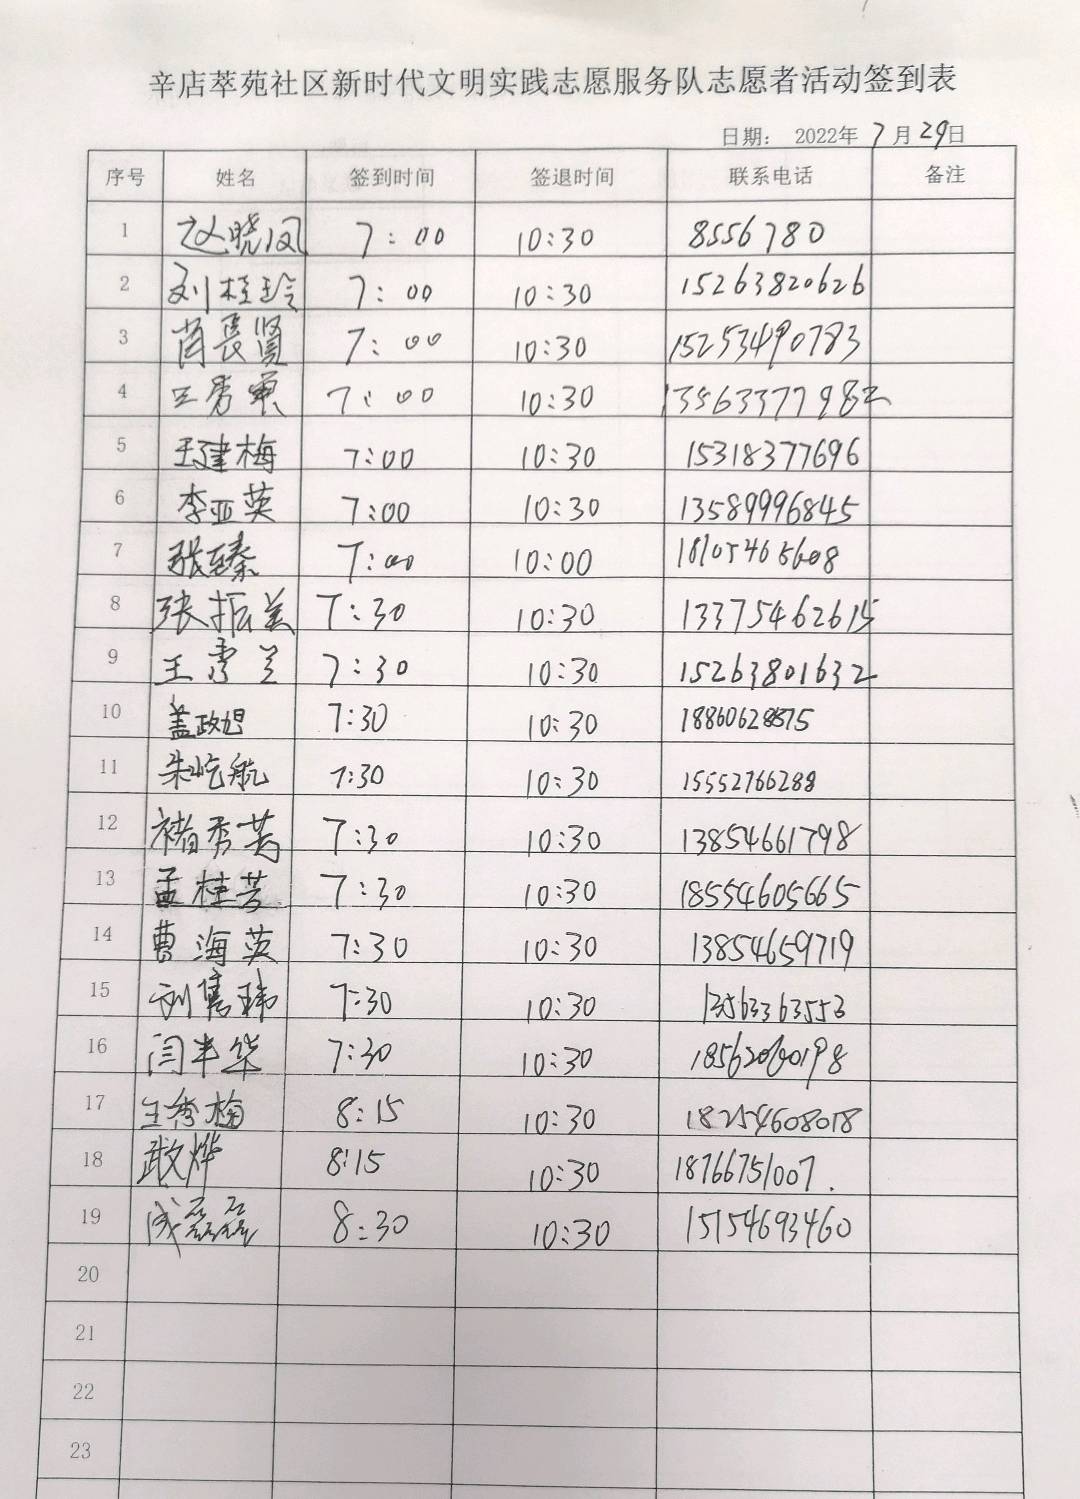 辛店萃苑社区新时代文明实践志愿服务队志愿者活动签到表
日期： 2022年 7月29日
序号 姓名 签到时间 签退时间 联系电话 备注
1 赵晓凤 7：00 10:30 8556780
2 刘桂玲 7：00 10:30 15263820626
3 长贤 7：00 10:30 15253490783
4 王秀 7：00 10:30 13563377982
5 王建梅 7:00 10:30 15318377696
6 李亚英 7:00 10:30 13589996845
7 张臻 7:00 10:00 18105465608
8 张振美 7:30 10:30 13375462615
9 王秀兰 7:30 10:30 15263801632
10 盖政旭 7:30 10:30
11 朱屹航 7:30 10:30 15552766288
12 褚秀芳 7:30 10:30 13854661798
13 孟桂芳 7:30 10:30 18554605665
14 曹海英 7:30 10:30 13854659719
15 刘隽玮 7:30 10:30 13563363553
16 闫丰华 7:30 10:30
17 王秀梅 8:15 10:30 18254608018
18 武文烨 8:15 10:30 18766751007.
19 成磊磊 8:30 10:30 15154693460
20
21
22
23